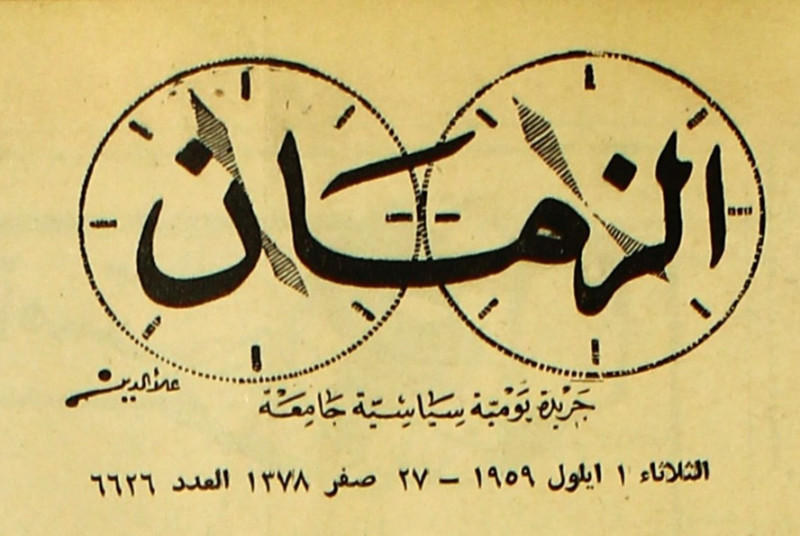 الزمان
جَريْدة يَوْميّة سِيَاسْيّة جَامِعَة
علاءالدين
الثلاثاء ١ ايلول ١٩٥٩ – ٢٧ صفر ١٣٧٨ العدد ٦٦٢٦